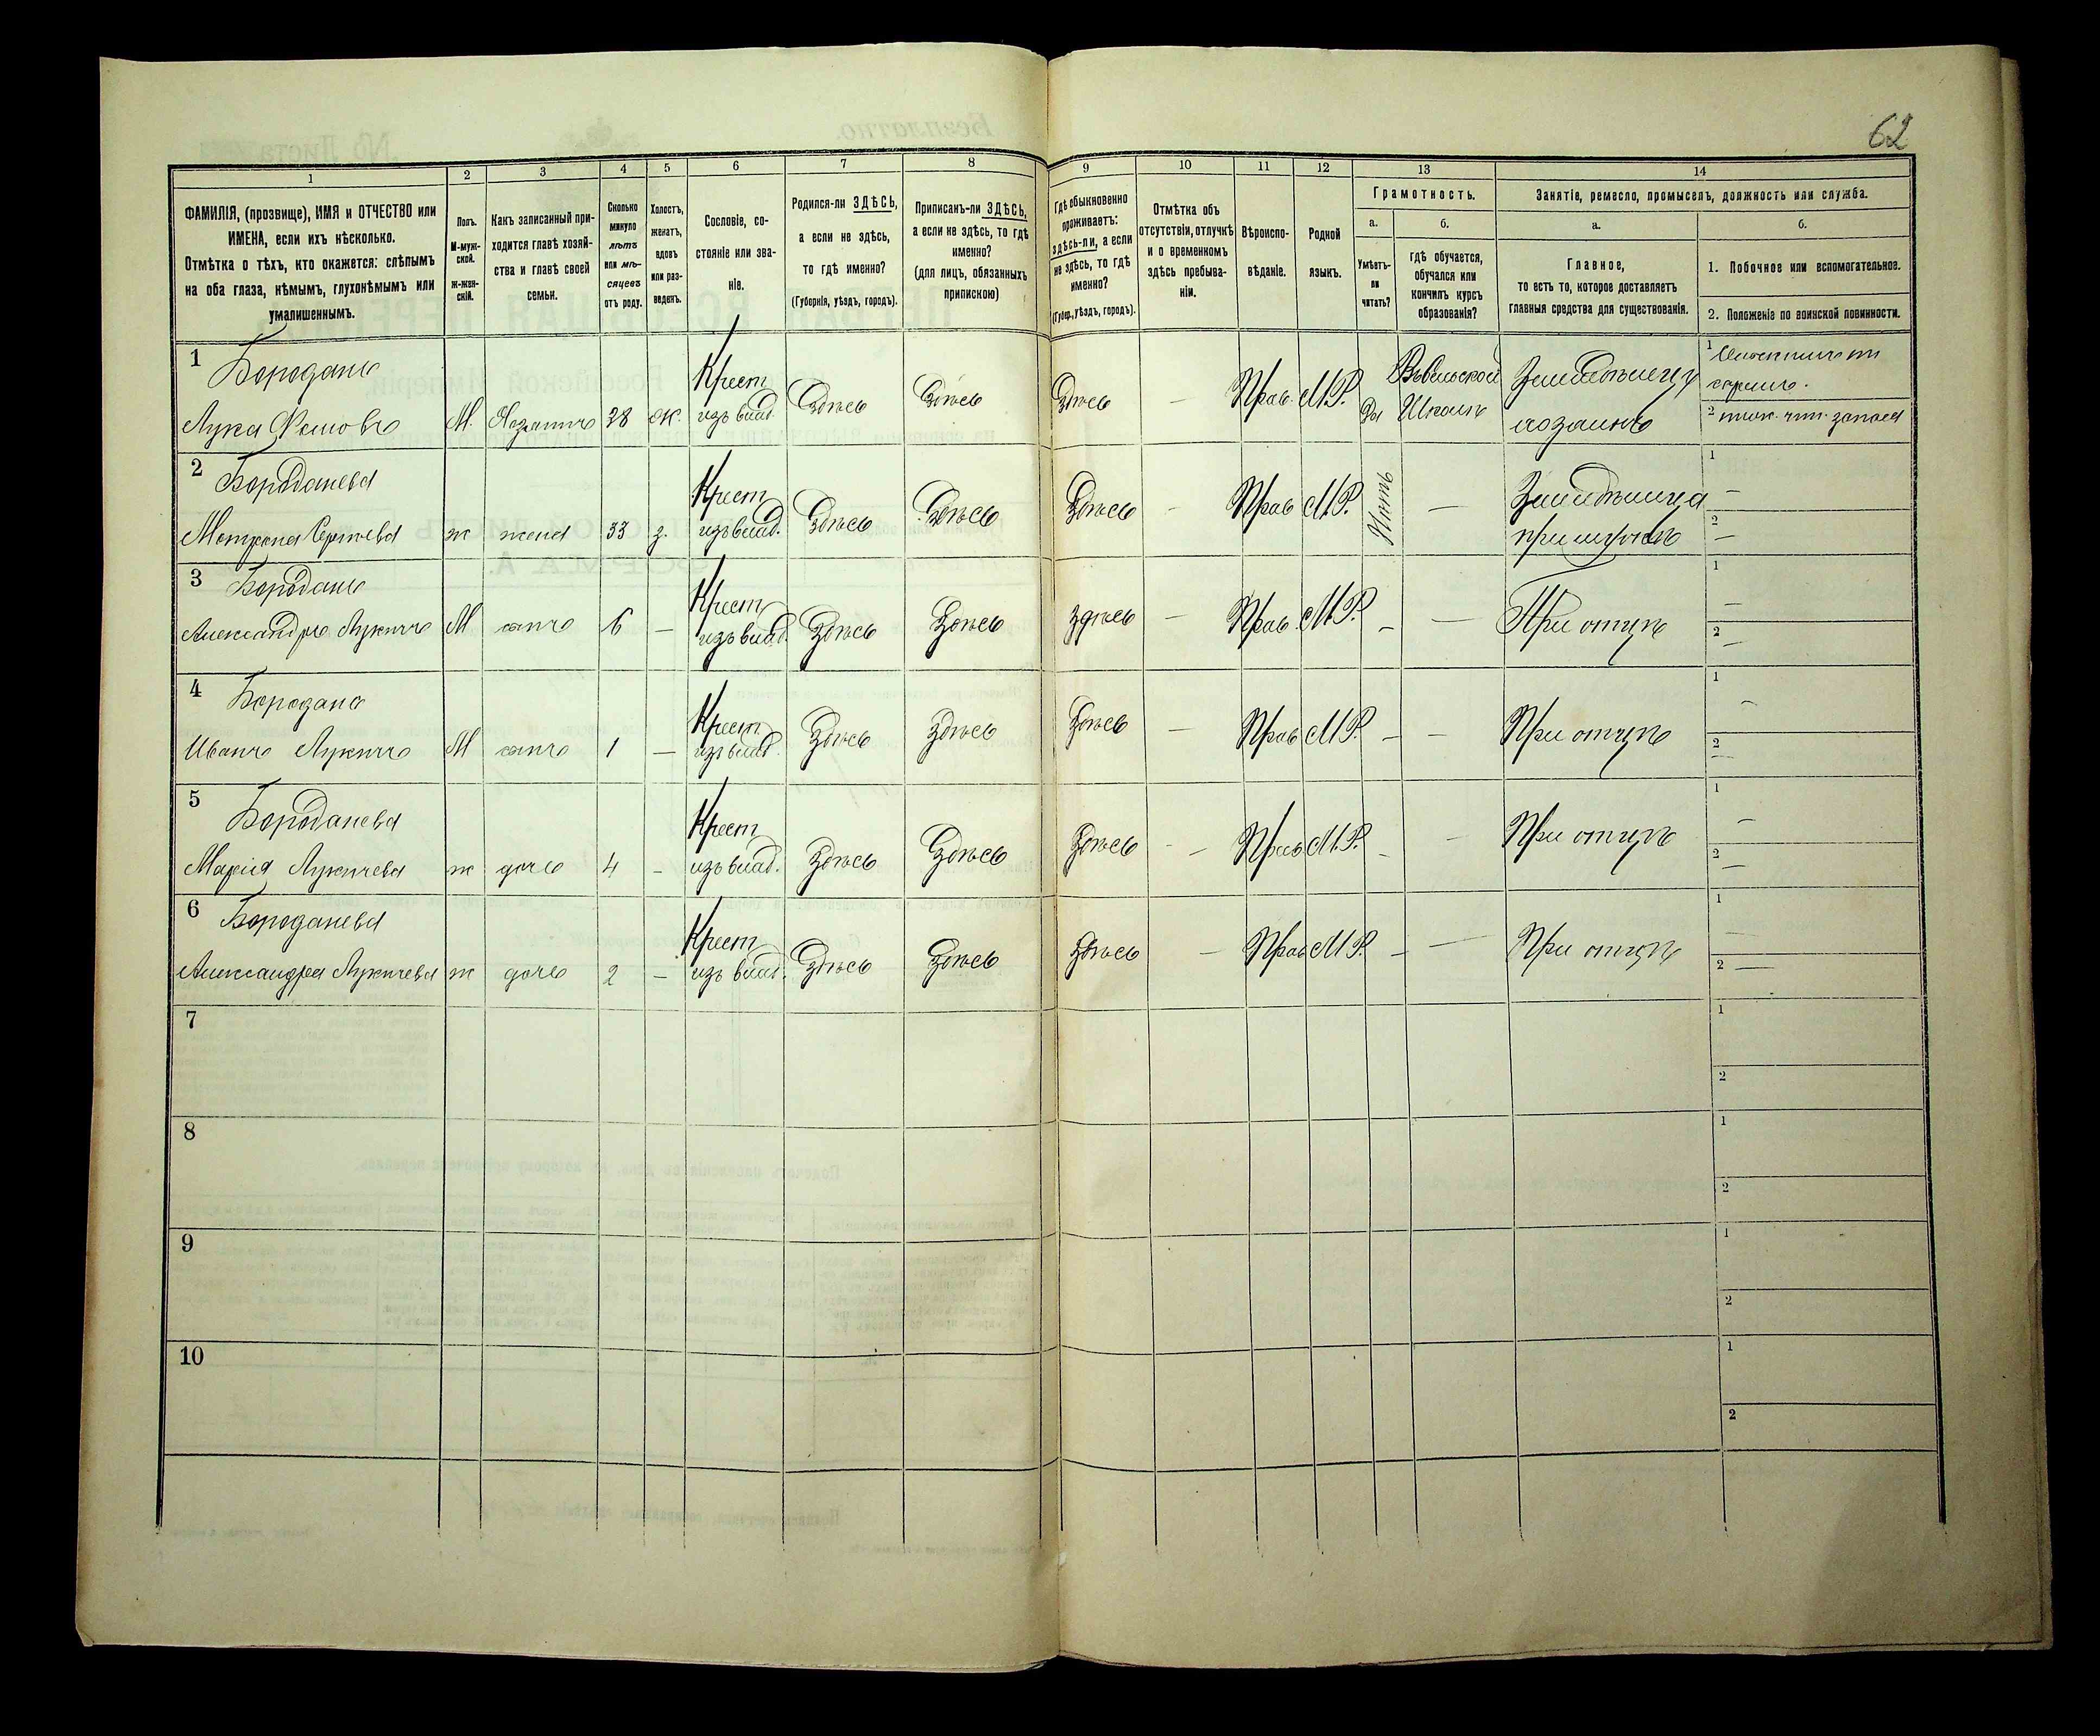 62
1
2
3
4
5
6
7
8
9
10
11
12
13
14
ФАМИЛІЯ, (прозвище), ИМЯ и ОТЧЕСТВО или
ИМЕНА, если ихъ нѣсколько.
Отмѣтка о тѣхъ, кто окажется: слѣпымъ
на оба глаза, нѣмымъ, глухонѣмымъ или
умалишеннымъ.
Полъ.
М-муж-
ской.
Ж-жен-
скій.
Какъ записанный при-
ходится главѣ хозяй-
ства и главѣ своей
семьи.
Сколько
минуло
лѣтъ
или мѣ-
сяцевъ
отъ роду.
Холостъ,
женатъ,
вдовъ
или раз-
веденъ.
Сословіе, со-
стояніе или зва-
ніе.
Родился-ли ЗДѢСЬ,
а если не здѣсь,
то гдѣ именно?
(Губернія, уѣздъ, городъ).
Приписанъ-ли ЗДѢСЬ,
а если не здѣсь, то гдѣ
именно?
(для лицъ, обязанныхъ
припискою)
Гдѣ обыкновенно
проживаетъ:
здѣсь-ли, а если
не здѣсь, то гдѣ
именно?
(Губер., уѣздъ, городъ).
Отмѣтка объ
отсутствіи, отлучкѣ
и о временномъ
здѣсь пребыва-
ніи.
Вѣроиспо-
вѣданіе.
Родной
языкъ.
Грамотность.
а.
Умѣетъ-
ли
читать?
б.
гдѣ обучается,
обучался или
кончилъ курсъ
образованія?
Занятіе, ремесло, промыселъ, должность или служба.
а.
Главное,
то есть то, которое доставляетъ
главныя средства для существованія.
б.
1. Побочное или вспомогательное.
2. Положеніе по воинской повинности.
1 Бороданъ
Лука М. Хозяинъ 28 Ж. Крест. изъ влад. Здѣсь Здѣсь Здѣсь — Прав. М.Р. Да Школѣ хозяинъ
1
2 запаса
2 Бороданева
Матрона Сергѣева ж жена 33 з. Крест изъ влад. Здѣсь Здѣсь Здѣсь - Прав М.Р. Нѣтъ — при мужѣ
1 —
2 —
3 Бороданъ
Александръ Лукичъ М сынъ 6 — Крест изъ влад. Здѣсь Здѣсь здѣсь — Прав. М.Р. - — При отцѣ
1 —
2 —
4 Бороданъ
Иванъ Лукичъ М сынъ 1 — Крест изъ влад. Здѣсь Здѣсь Здѣсь — Прав М.Р. - - При отцѣ
1 —
2 —
5 Бороданева
Марія Лукичева ж дочь 4 - Крест изъ влад. Здѣсь Здѣсь Здѣсь - - Прав М.Р. - - При отцѣ
1 —
2 —
6 Бороданева
Александра Лукичева ж дочь 2 — Крест изъ влад. Здѣсь Здѣсь Здѣсь — Прав М.Р. - — При отцѣ
1 —
2 —
7
1
2
8
1
2
9
1
2
10
1
2